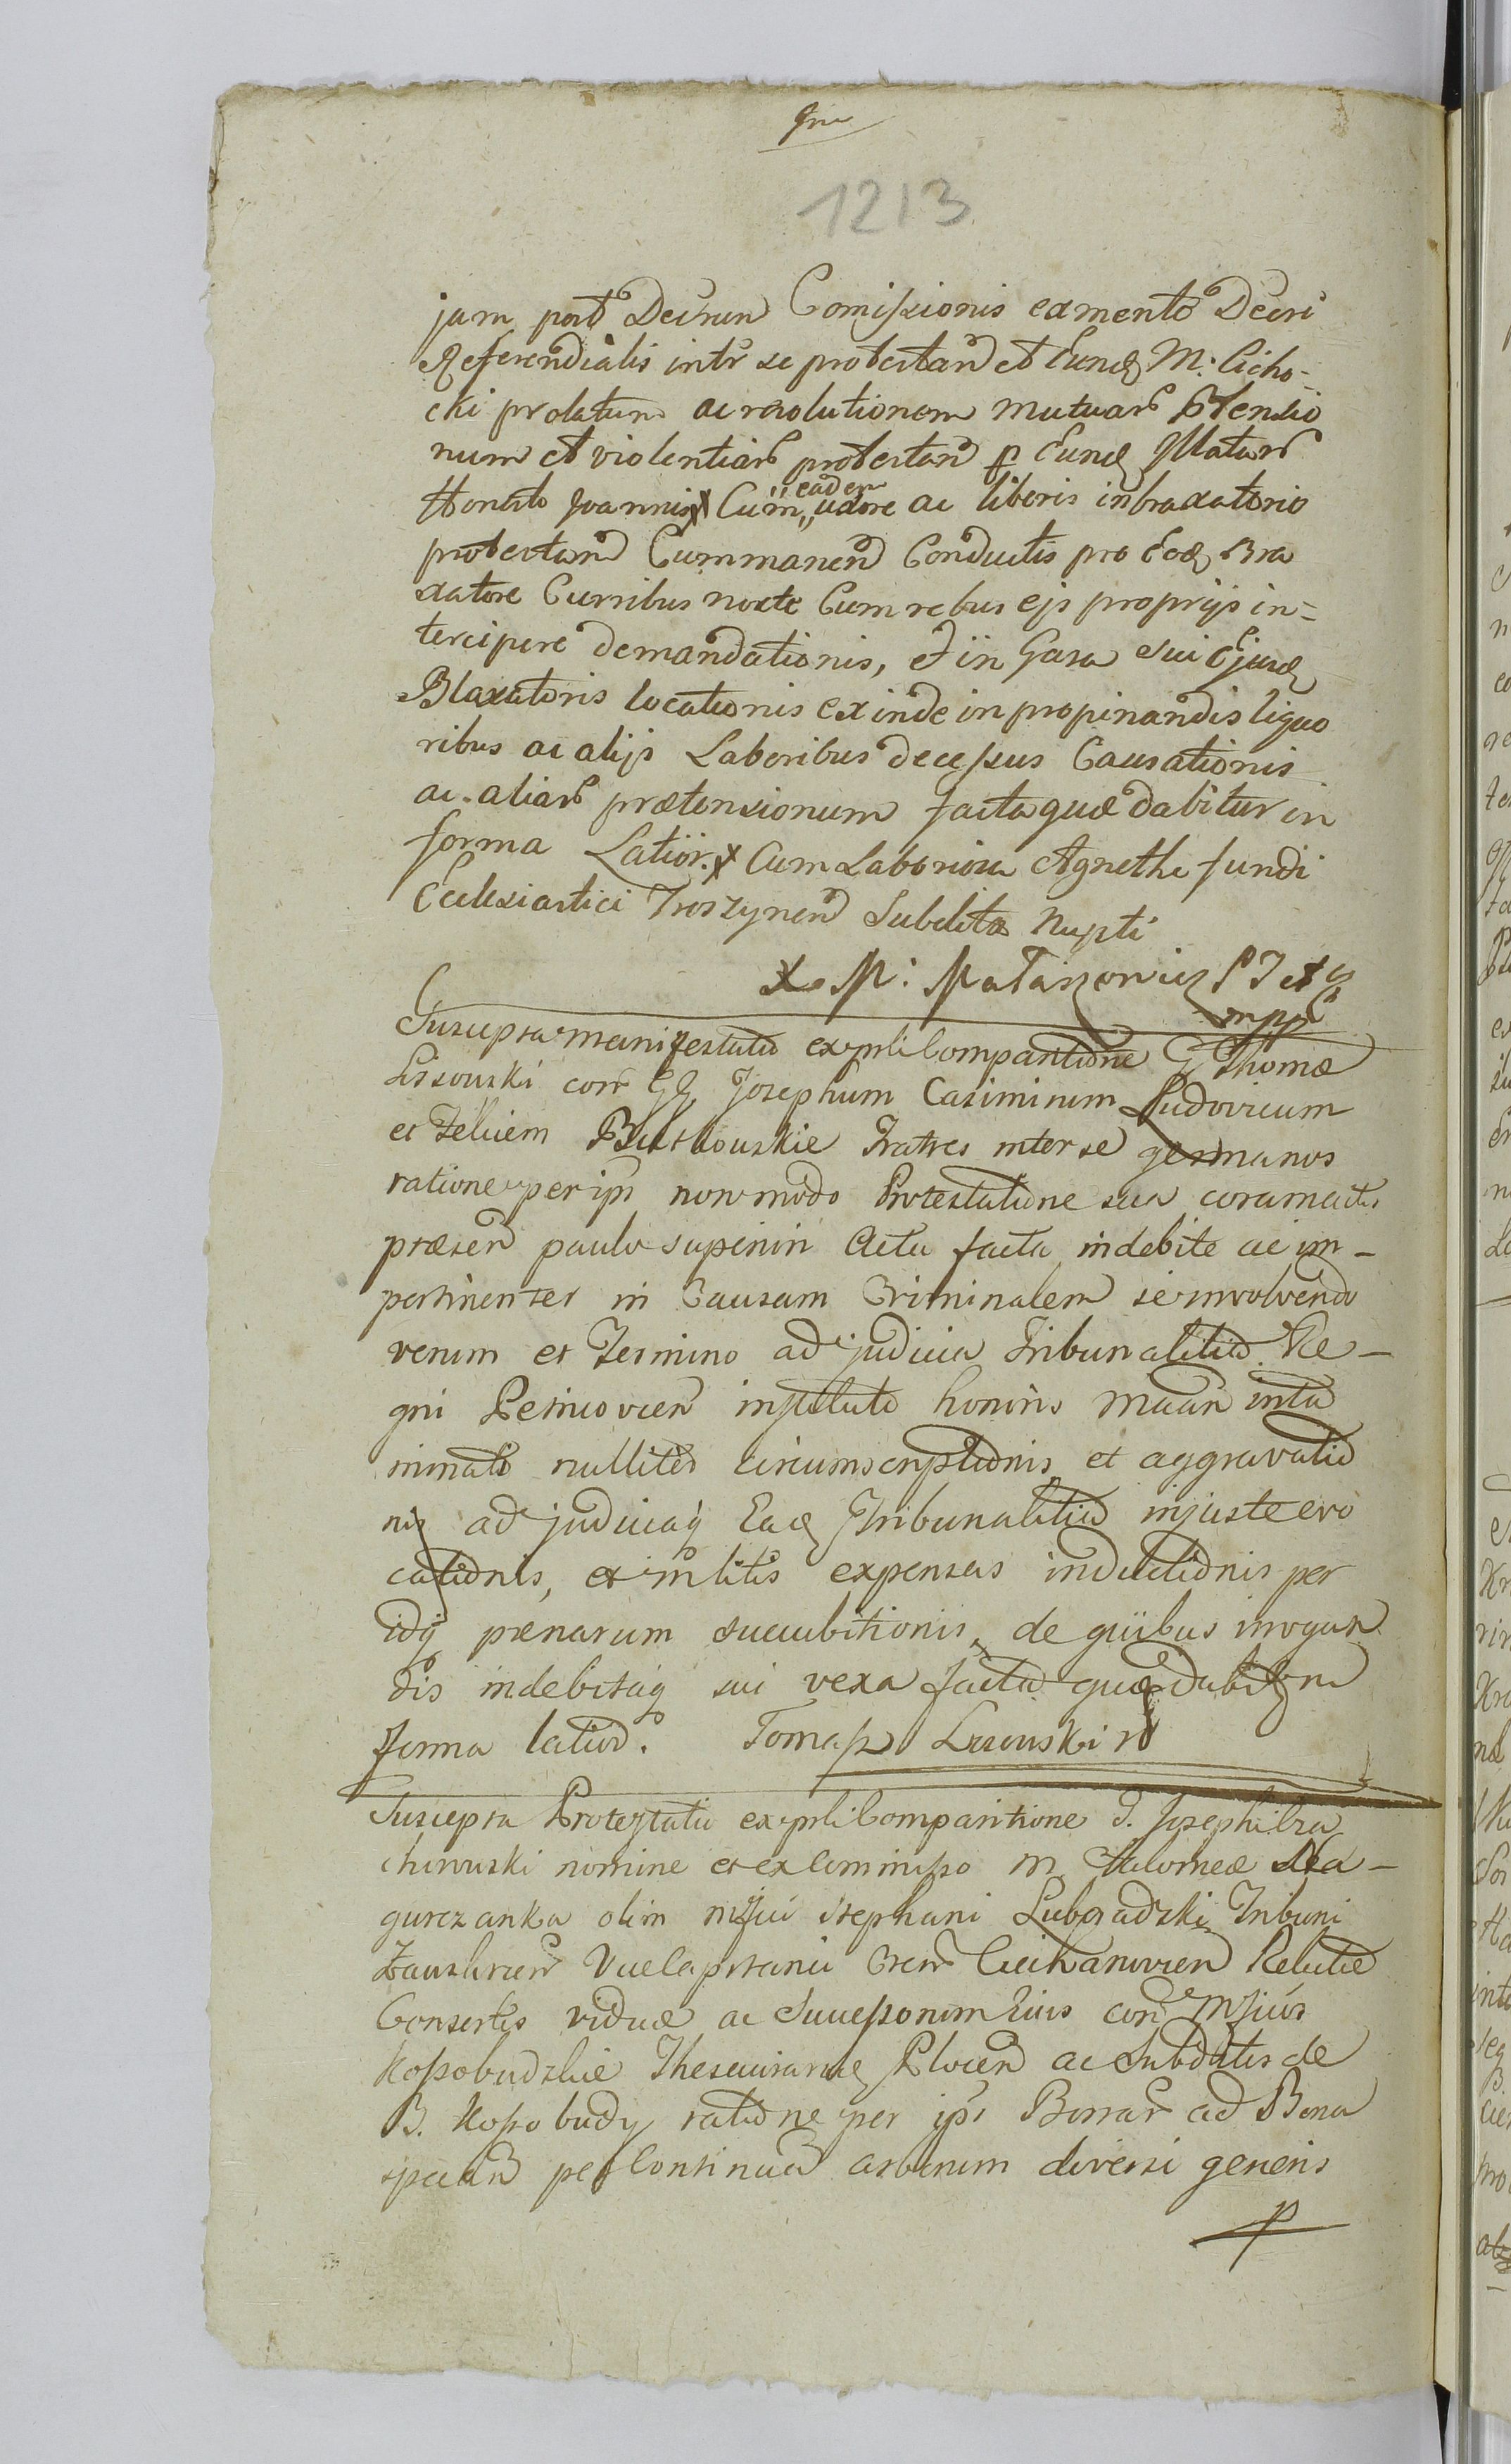 1213
jam post Decrum Comissionis exmento Decri
Referendialis intr se protestan et Eund M. Cicho-
cki prolatum ac resolutionem mutuar Ptensio
num et violentiar protestan p Eund Illatar
Honesto Joannis X Cum eadem uxore ac liberis in braxatorio
protestan Cummanen Conductis pro Eod Bra
xatore Curribus nocte Cum rebus ejs proprijs in=
tercipere demandationis, et in Casa sui Ejusd
Blaxatoris locationis exinde in propinandis liquo
ribus ac alijs Laboribus decessus Causationis
ac aliar prætensionum facta quæ dabitur in
forma Latior. X Cum Laboriosa Agnethe fundi
Ecclesiastici Troszynen Subdita Nupti
X M:
Suscepta manifestatio ex prli Compartione G Thomæ
Lissowski con GG Josephum Casimirum Ludovicum
et Felicem Fratres inter se germanos
ratione per ips non modo Protestatione sua coram actis
præsen paulo superiri Actu facta indebite ac im-
pertinenter in Causam Criminalem se involvendo
verum et Termino ad judicia Tribunalitia Re-
gni Petricovien institute honoris
nullites circumscriptionis et aggravatio
nis ad judiciaq Ead Tribunalitia injuste evo
cationis, et in litis expensas inductionis per
idq pænarum succubitionis, de quibus irrogan
dis indebitaq sui vexa facta quæ dabitur in
forma latior. Tomasz Lissowski
Suscepta Protestatio ex prli Comparitione G. Josephi
nomine et ex Commisso M Salomeæ Na-
gurczanka olim Mfici Stephani Lubgradzki Tribuni
Zauskrzen Vicecapitanei Cren Ciechanovien Relictæ
Consortis viduæ ac Successorum Eius con Mficos
Kossobudzkie Thesaurarios Plocen ac Subditos de
B. Kossobudy ratione per ips Borrar ad Bona
spectan per Continua arborum diversi generis